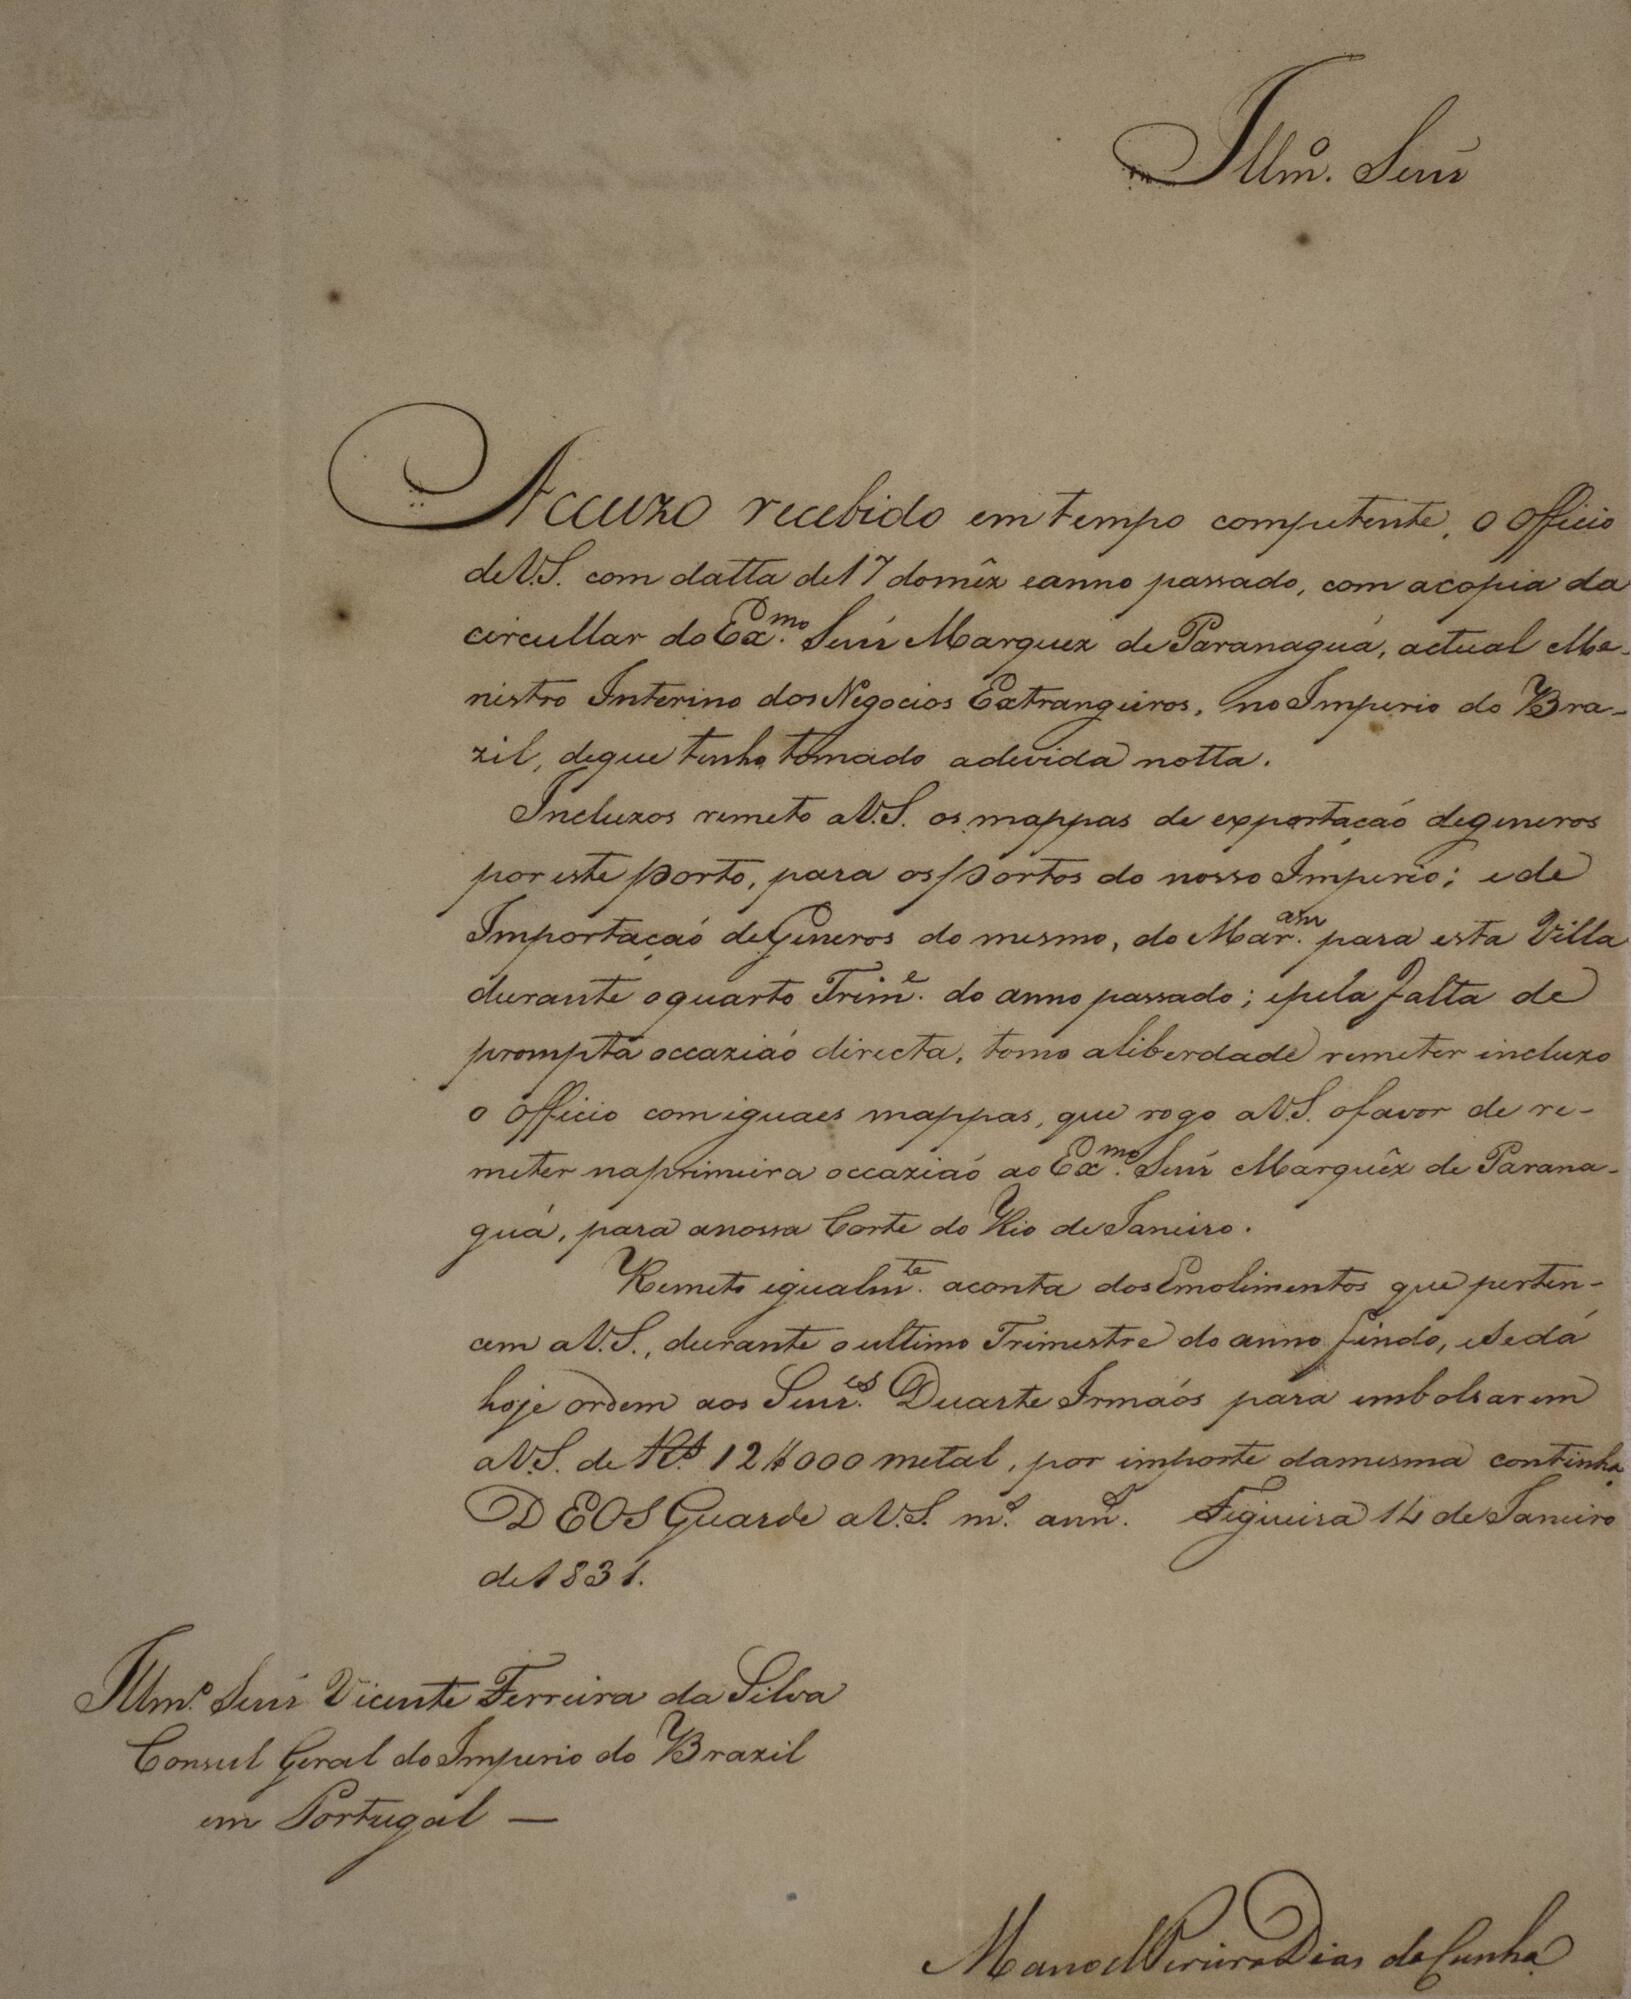 Illmº. Senr
Accuzo recebido em tempo competente, o Officio
de V.S. com datta de 17 do mêz e anno passado, com a copia da
circullar do Exmo. Senr Marquez de Paranaguá, actual Me-
nistro Interino dos Negocios Extrangeiros, no Imperio do Bra-
zil, de que tenho tomado a devida notta.
Incluzos remeto a V.S. os mappas de exportaçaó de generos
por este porto, para os portos do nosso Imperio; e de
Importaçaó de Generos do mesmo, do Maram. para esta Villa
durante o quarto Trime. do anno passado; e pela falta de
prompta occaziaó directa, tomo a liberdade remeter incluzo
o Officio com iguaes mappas, que rogo a V.S. o favor de re-
meter na primeira occaziaó ao Exmo. Senr Marquêz de Parana-
guá, para a nossa Corte do Rio de Janeiro.
Remeto igualmte. a conta dos Emolimentos que perten-
cem a V.S., durante o ultimo Trimestre do anno findo, e se dá
hoje ordem aos Senres. Duarte Irmaós para embolsarem
a V.S. de Rs. 12$000 metal, por importe da mesma continha
DEOS Guarde a V.S. ms. anns. Figueira 14 de Janeiro
de 1831.
Illmo. Senr Vicente Ferreira da Silva
Consul Geral do Imperio do Brazil
em Portugal —
Manoel Pereira Dias da Cunha